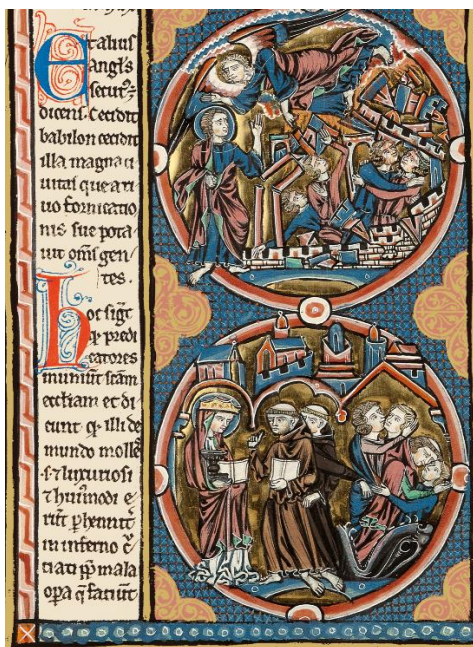 Et alius
angl's
secut'
dicens. Cecidit
babilon cecidit
illa magna ci
uitas que a ui
no fornicatio
nis sue pota
uit om̄s gen
tes.
Hoc sigt
qͥ predi
catores
muniūt scām
eccliam et di
cunt qͥ illi de
mundo molles
⁊ luxuriosi
⁊ huiusmodi e
rūt phennit
in inferno c̄
ciati pͥ mala
opa q̄ faciūt